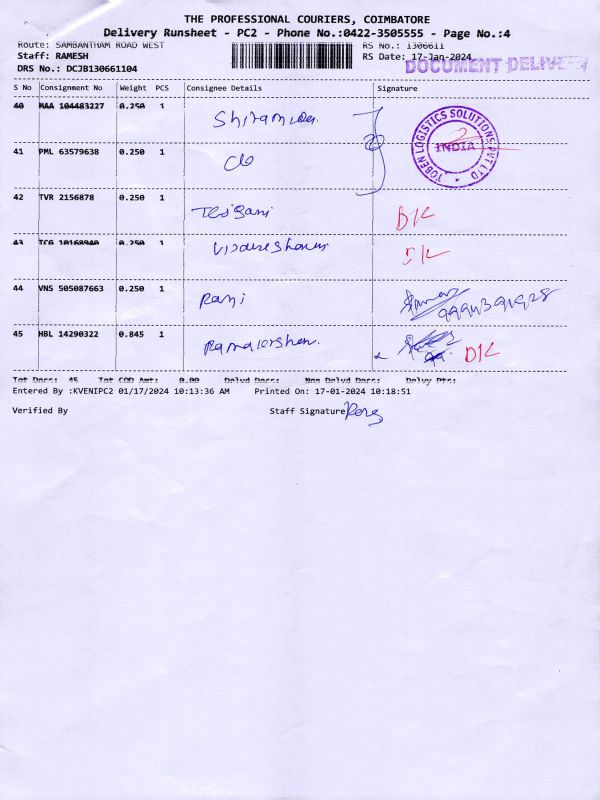 THE PROFESSIONAL COURIERS, COIMBATORE
Delivery Runsheet - PC2 - Phone No.:0422-3505555 - Page No.:4
Route: SAMBANTHAM ROAD WEST RS No.: 1306611
Staff: RAMESH RS Date: 17-Jan-2024
DOCUMENT DELIVE
DRS No.: DCJB130661104
S No Consignment No Weight PCS Consignee Details Signature
40 MAA 104483227 0.250 1
TOBEN LOGISTICS SOLUTIONS PVT LTD
INDIA
41 PML 63579638 0.250 1
42 TVR 2156878 0.250 1
43 TCG 10168940 0.250 1
44 VNS 505087663 0.250 1 Rani
45 HBL 14290322 0.845 1
Tot Docs: 45 Tot COD Amt: 0.00 Delvd Docs: Non Delvd Docs: Delvy Pts:
Entered By :KVENIPC2 01/17/2024 10:13:36 AM Printed On: 17-01-2024 10:18:51
Verified By Staff Signature